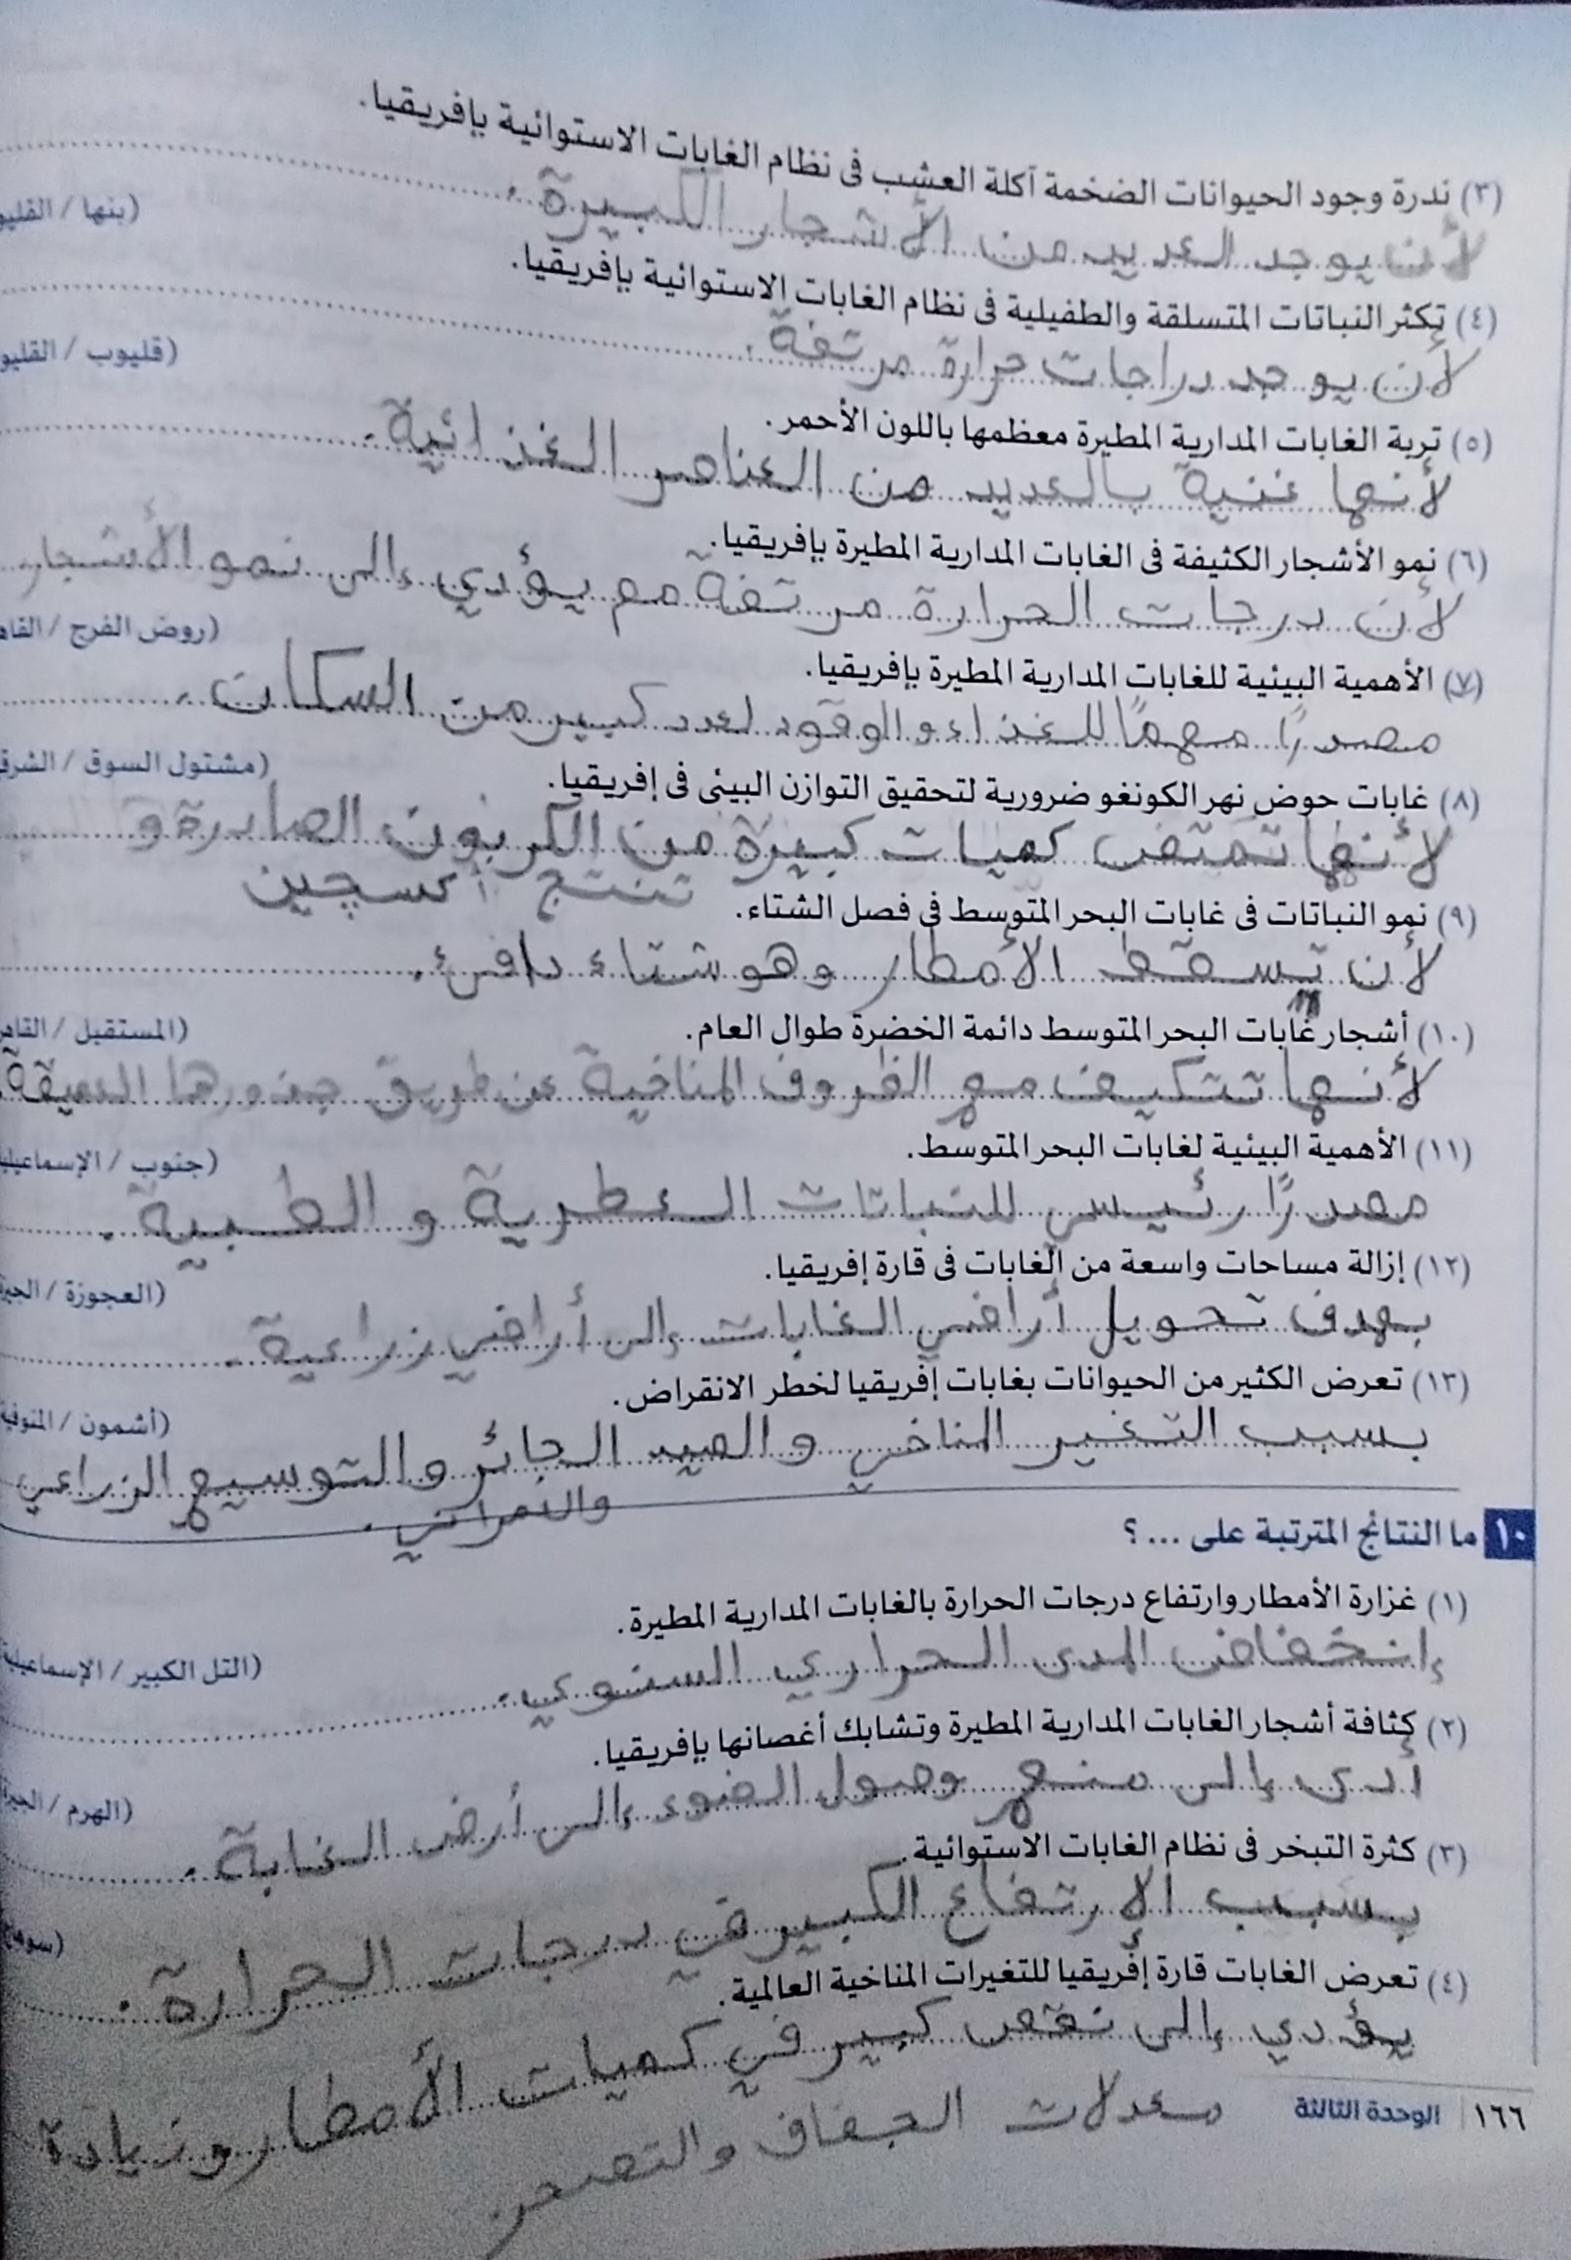 (٣) ندرة وجود الحيوانات الضخمة آكلة العشب فى نظام الغابات الاستوائية بإفريقيا.
لأن يوجد العديد من الأشجار الكبيرة.
(بنها / القليو
(٤) تكثر النباتات المتسلقة والطفيلية فى نظام الغابات الاستوائية بإفريقيا.
لأن يوجد دراجات حرارة مرتفة.
(قليوب / القليو
(٥) تربة الغابات المدارية المطيرة معظمها باللون الأحمر.
لأنها غنية بالعديد من العناصر الغذائية.
(٦) نمو الأشجار الكثيفة فى الغابات المدارية المطيرة بإفريقيا.
لأن درجات الحرارة مرتفة مم يؤدي إلى نمو الأشجار
(روض الفرج / القاه
(٧) الأهمية البيئية للغابات المدارية المطيرة بإفريقيا.
مصدرًا مهمًا للغذاء والوقود لعدد كبير من السكان.
(مشتول السوق / الشرق
(٨) غابات حوض نهر الكونغو ضرورية لتحقيق التوازن البيئى فى إفريقيا.
لأنها تمتص كميات كبيرة من الكربون الصادرة و
تنتج أكسجين
(٩) نمو النباتات فى غابات البحر المتوسط فى فصل الشتاء.
لأن تسقط الأمطار وهو شتاء دافئ.
(١٠) أشجار غابات البحر المتوسط دائمة الخضرة طوال العام.
(المستقبل / القاهر
لأنها تتكيف مع الظروف المناخية عن طريق جذورها العميقة.
(١١) الأهمية البيئية لغابات البحر المتوسط.
(جنوب / الإسماعيلية
مصدرًا رئيسي للنباتات العطرية و الطبية.
(١٢) إزالة مساحات واسعة من الغابات فى قارة إفريقيا.
(العجوزة / الجيزة
بهدف تحويل أراضي الغابات إلى أراضي زراعية.
(١٣) تعرض الكثير من الحيوانات بغابات إفريقيا لخطر الانقراض.
(أشمون / المنوفية
بسبب التغير المناخي و الصيد الجائر والتوسيع الزراعي
والأمراض.
١٠ ما النتائج المترتبة على ...؟
(١) غزارة الأمطار وارتفاع درجات الحرارة بالغابات المدارية المطيرة.
إنخفاض المدى الحراري السنوي.
(التل الكبير / الإسماعيلية
(٢) كثافة أشجار الغابات المدارية المطيرة وتشابك أغصانها بإفريقيا.
أدى إلى منع وصول الضوء إلى أرض الغابة.
(الهرم / الجيزة
(٣) كثرة التبخر فى نظام الغابات الاستوائية.
بسبب الارتفاع الكبير في درجات الحرارة.
(سوها
(٤) تعرض الغابات قارة إفريقيا للتغيرات المناخية العالمية.
يؤدي إلى نقص كبير في كميات الأمطار وزيادة
معدلات الجفاف والتصحر.
١٦٦ | الوحدة الثالثة